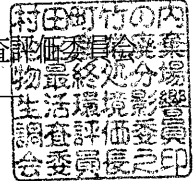 村田町竹の内
査評価委員会
棄
物最終処分場
生活環境影響
調査評価委員
会委員長之印